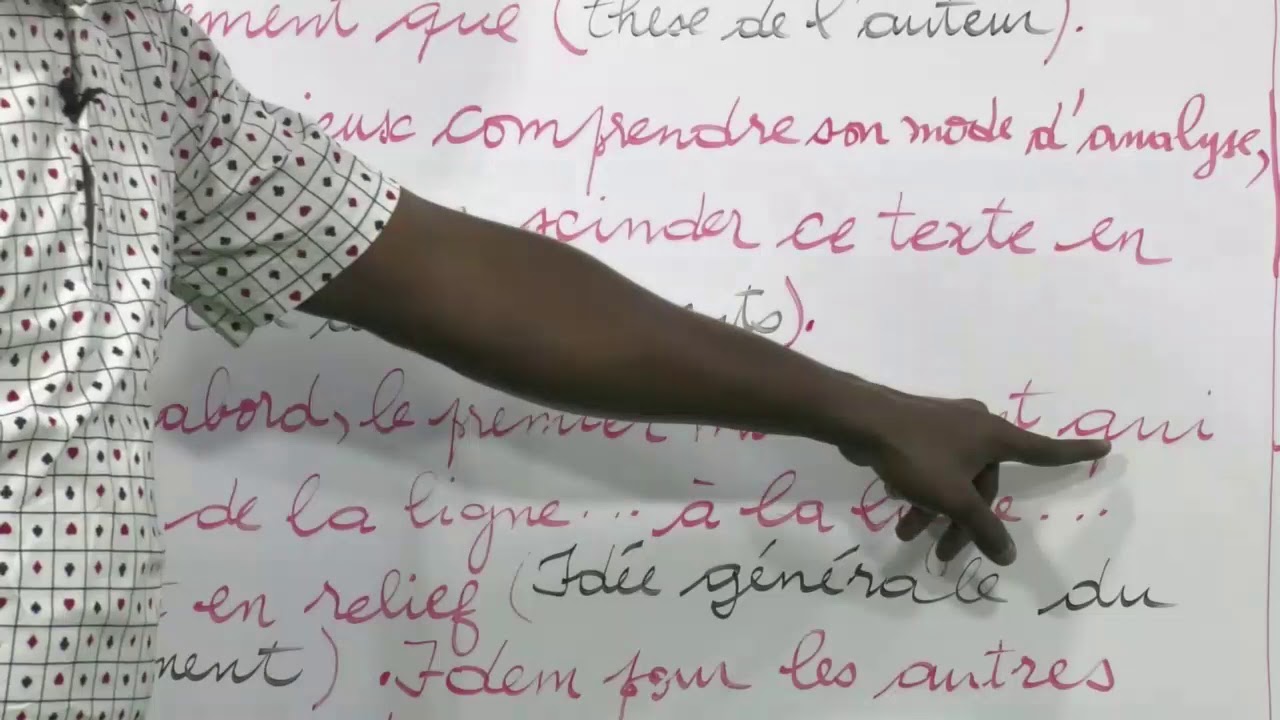 ement que (thèse de l'auteur).
ieux comprendre son mode d'analyse,
scinder ce texte en
nts).
abord, le premier m t qui
de la ligne... à la li e...
en relief (Idée générale du
ment). Idem pour les autres